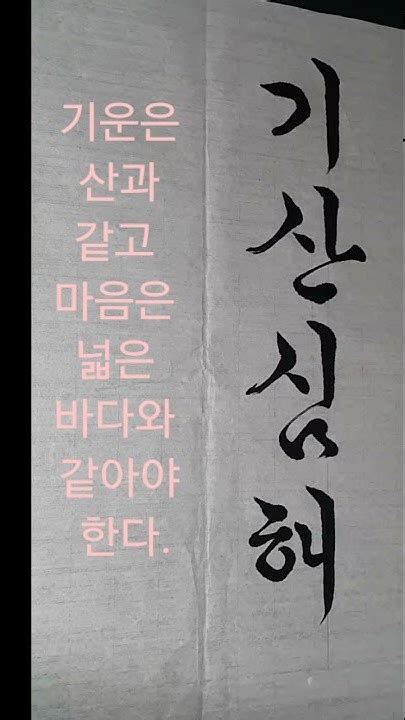 기운은
산과
같고
마음은
넓은
바다와
같아야
한다.
기
산
심
해